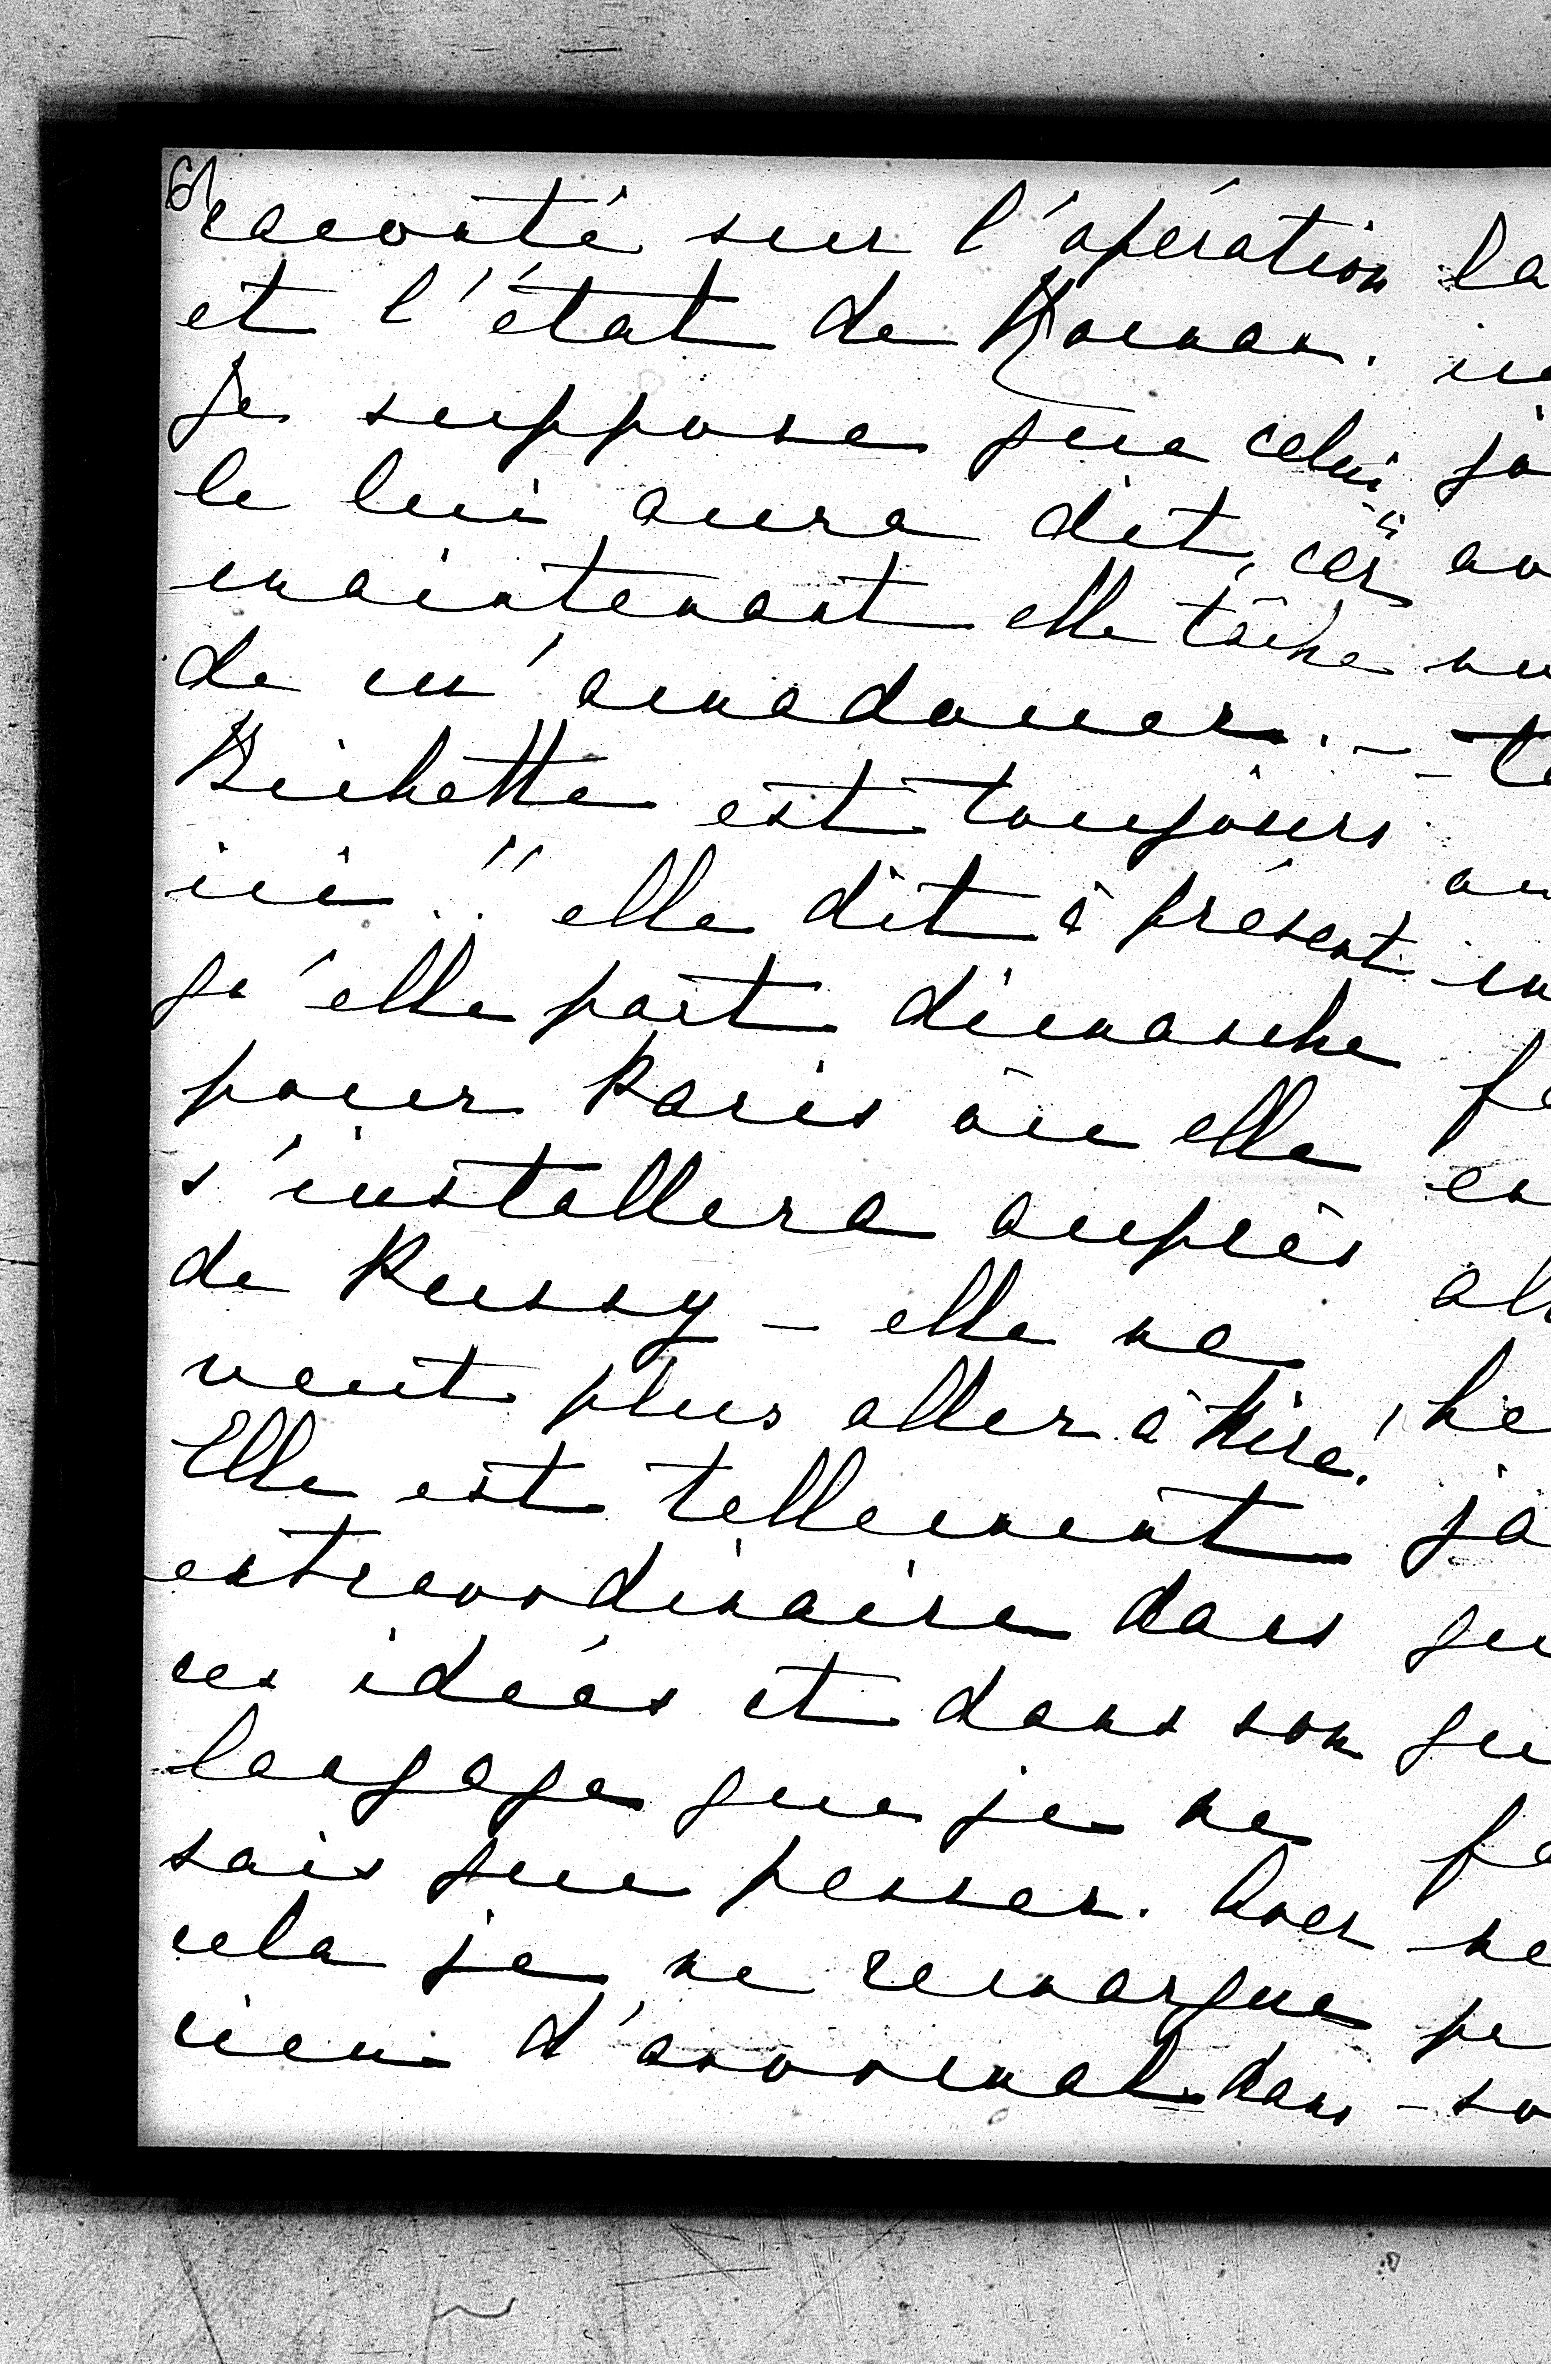 6/
raconté sur l'opération la
et l'état de Roman.
Je suppose que celui-ci
le lui aura dit, car
maintenant elle tâche
de m'amadouer. —
Bichette est toujours
ici..!! elle dit à présent
qu'elle part dimanche
pour Paris où elle
s'installera auprès
de Pussy — elle ne
veut plus aller à Miré!
Elle est tellement
extraordinaire dans
ces idées et dans son
langage que je ne
sais que penser. Hors
cela je ne remarque
rien d'anormal dans